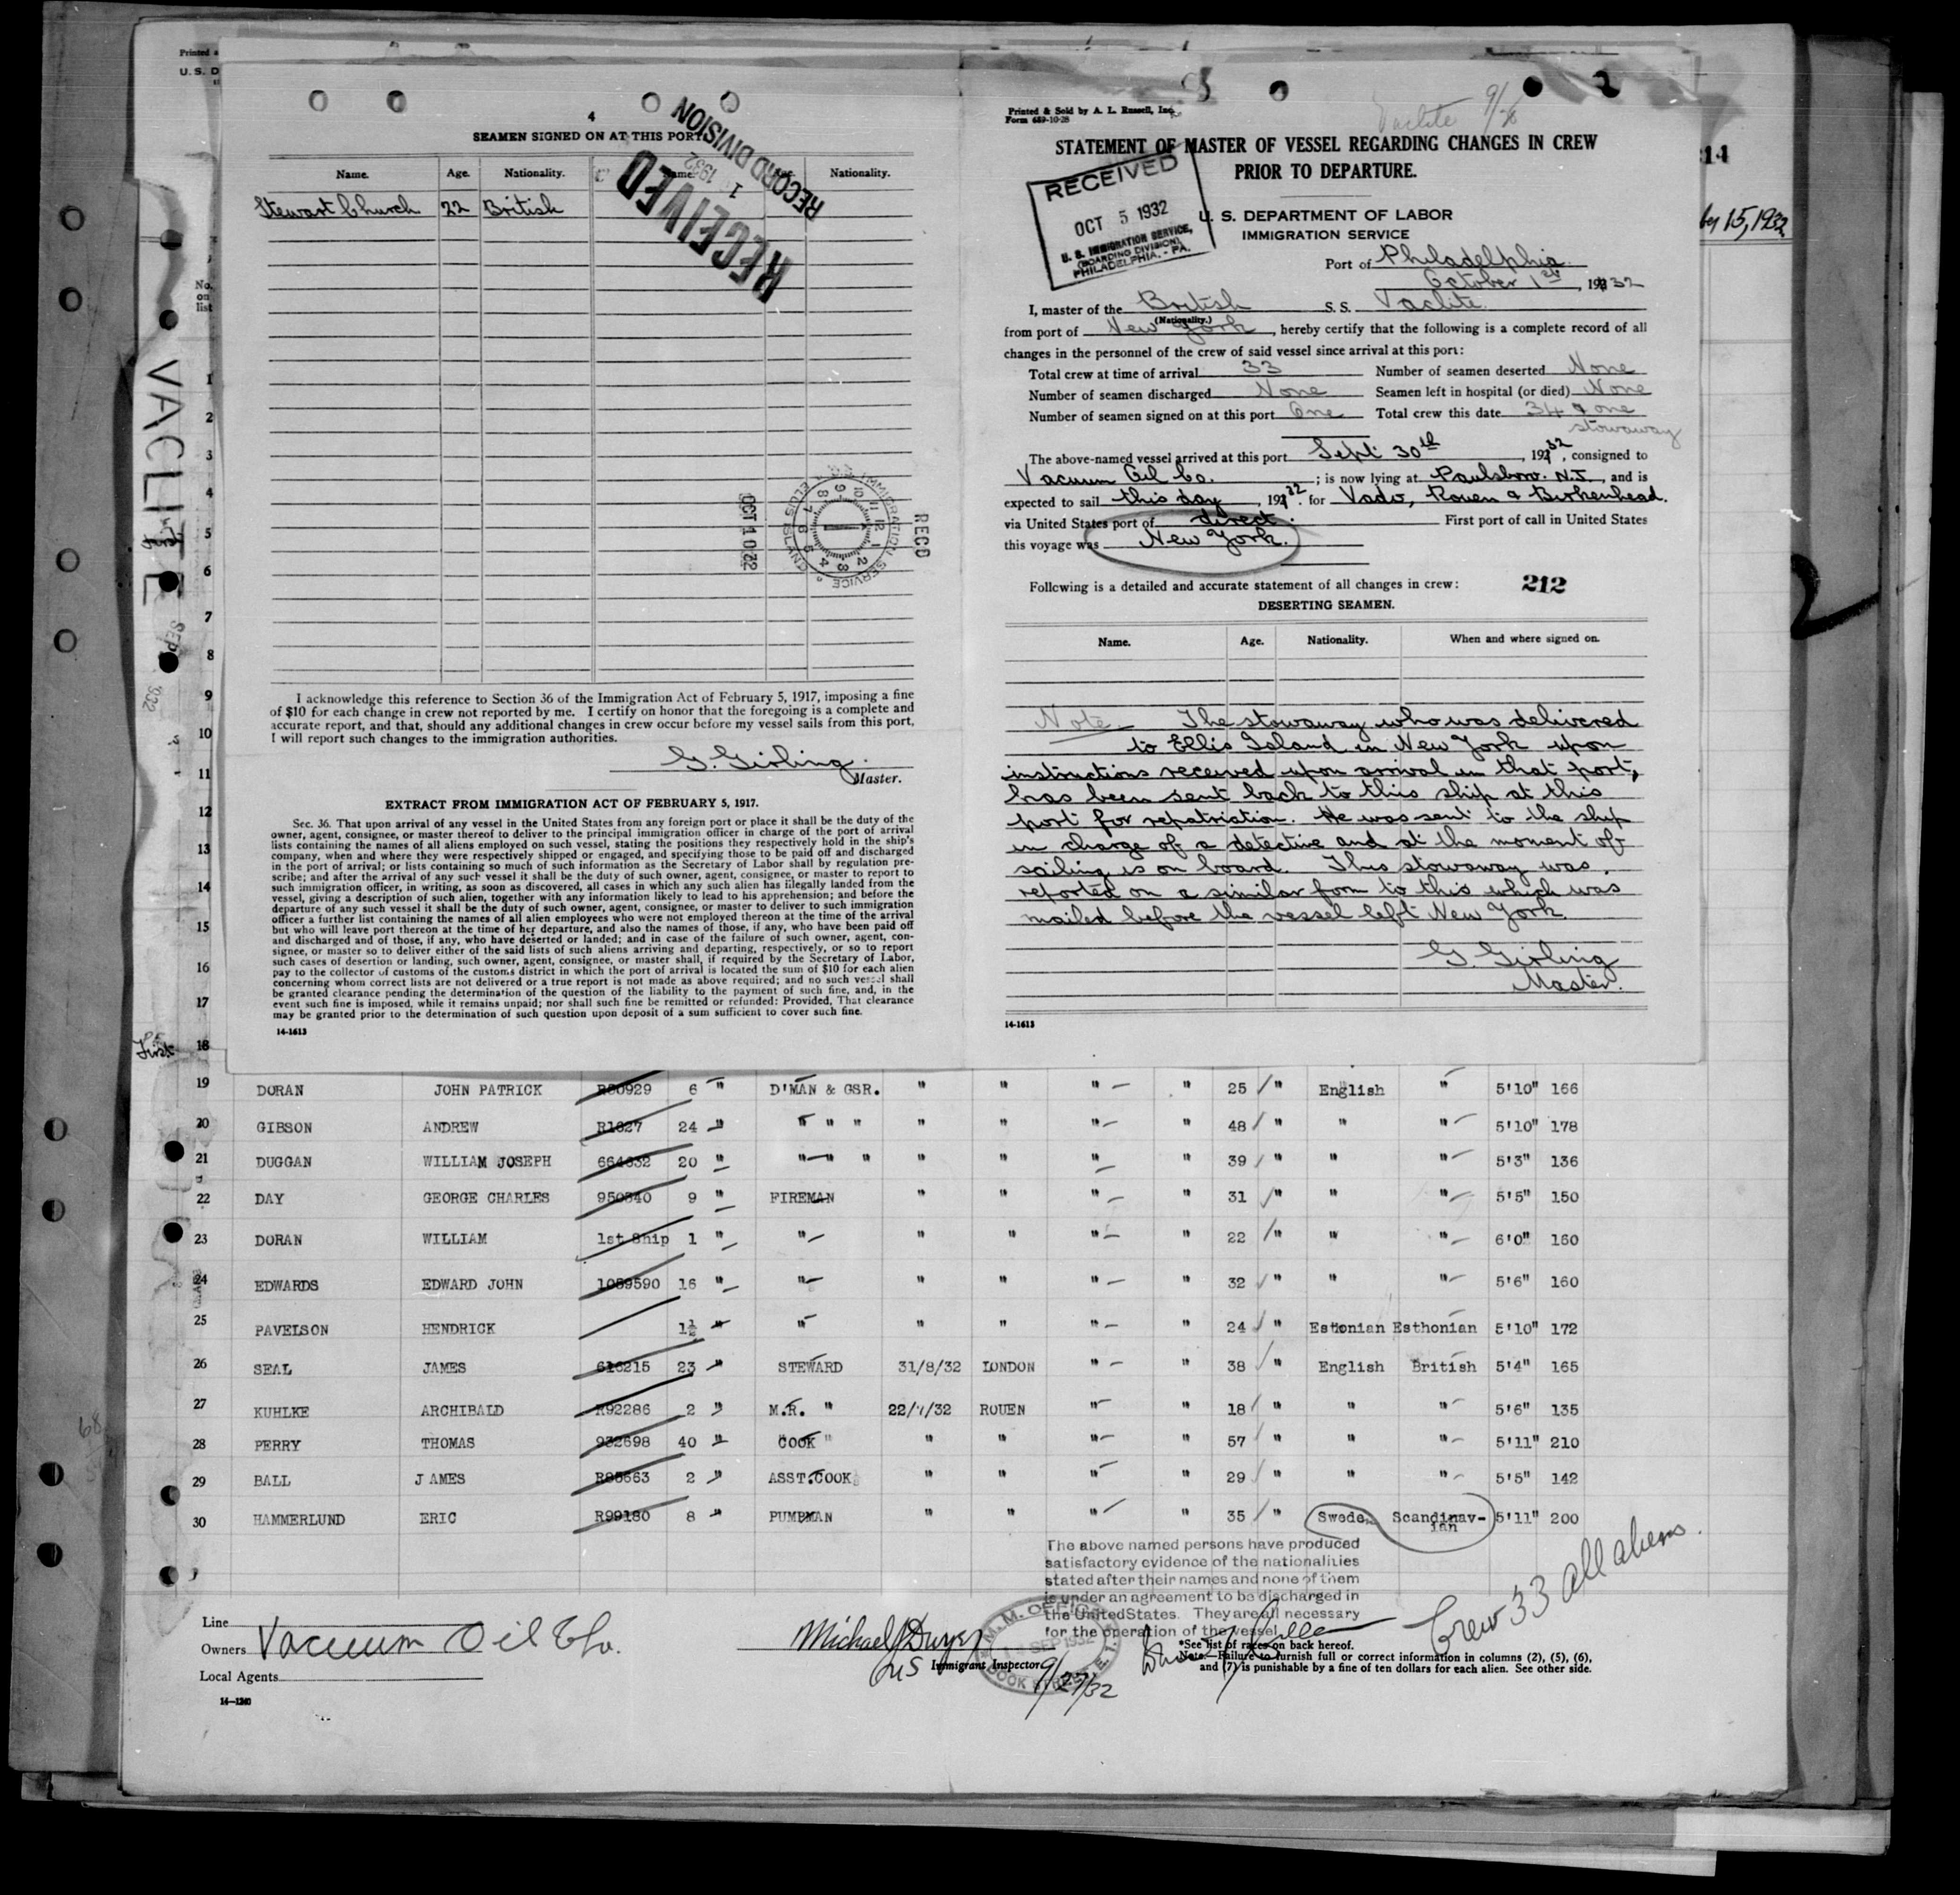 Printed
U. S. D
4
SEAMEN SIGNED ON AT THIS PORT.
Name. Age. Nationality. Name. Age. Nationality.
Stewart Church 22 British
RECEIVED
1 1932
RECORD DIVISION
OCT 10 32
RECD
IMMIGRATION SERVICE
ELLIS ISLAND
I acknowledge this reference to Section 36 of the Immigration Act of February 5, 1917, imposing a fine
of $10 for each change in crew not reported by me. I certify on honor that the foregoing is a complete and
accurate report, and that, should any additional changes in crew occur before my vessel sails from this port,
I will report such changes to the immigration authorities.
G. Girling.
Master.
EXTRACT FROM IMMIGRATION ACT OF FEBRUARY 5, 1917.
Sec. 36. That upon arrival of any vessel in the United States from any foreign port or place it shall be the duty of the
owner, agent, consignee, or master thereof to deliver to the principal immigration officer in charge of the port of arrival
lists containing the names of all aliens employed on such vessel, stating the positions they respectively hold in the ship's
company, when and where they were respectively shipped or engaged, and specifying those to be paid off and discharged
in the port of arrival; or lists containing so much of such information as the Secretary of Labor shall by regulation pre-
scribe; and after the arrival of any such vessel it shall be the duty of such owner, agent, consignee, or master to report to
such immigration officer, in writing, as soon as discovered, all cases in which any such alien has illegally landed from the
vessel, giving a description of such alien, together with any information likely to lead to his apprehension; and before the
departure of any such vessel it shall be the duty of such owner, agent, consignee, or master to deliver to such immigration
officer a further list containing the names of all alien employees who were not employed thereon at the time of the arrival
but who will leave port thereon at the time of her departure, and also the names of those, if any, who have been paid off
and discharged and of those, if any, who have deserted or landed; and in case of the failure of such owner, agent, con-
signee, or master so to deliver either of the said lists of such aliens arriving and departing, respectively, or so to report
such cases of desertion or landing, such owner, agent, consignee, or master shall, if required by the Secretary of Labor,
pay to the collector of customs of the customs district in which the port of arrival is located the sum of $10 for each alien
concerning whom correct lists are not delivered or a true report is not made as above required; and no such vessel shall
be granted clearance pending the determination of the question of the liability to the payment of such fine, and, in the
event such fine is imposed, while it remains unpaid; nor shall such fine be remitted or refunded: Provided, That clearance
may be granted prior to the determination of such question upon deposit of a sum sufficient to cover such fine.
14-1613
Printed & Sold by A. L. Russell, Inc.
Form 689-10-28
Vaclite
STATEMENT OF MASTER OF VESSEL REGARDING CHANGES IN CREW
PRIOR TO DEPARTURE.
RECEIVED
OCT 5 1932
U. S. IMMIGRATION SERVICE,
(BOARDING DIVISION)
PHILADELPHIA, - PA.
U. S. DEPARTMENT OF LABOR
IMMIGRATION SERVICE
Port of Philadelphia.
October 1st, 1932
I, master of the British S. S. Vaclite.
(Nationality.)
from port of New York, hereby certify that the following is a complete record of all
changes in the personnel of the crew of said vessel since arrival at this port:
Total crew at time of arrival 33 Number of seamen deserted None
Number of seamen discharged None Seamen left in hospital (or died) None
Number of seamen signed on at this port One Total crew this date 34 & one
stowaway
The above-named vessel arrived at this port Sept 30th, 1932, consigned to
Vacuum Oil Co.; is now lying at Paulsboro. N.J., and is
expected to sail this day, 1932 for Vado, Rouen & Birkenhead.
via United States port of direct. First port of call in United States
this voyage was New York.
Following is a detailed and accurate statement of all changes in crew: 212
DESERTING SEAMEN.
Name. Age. Nationality. When and where signed on.
Note. The stowaway who was delivered
to Ellis Island in New York upon
instructions received upon arrival in that port,
has been sent back to this ship at this
port for repatriation. He was sent to the ship
in charge of a detective and at the moment of
sailing is on board. This stowaway was
reported on a similar form to this which was
mailed before the vessel left New York.
G. Girling
Master.
14-1613
214
15, 1932
2
VACLITE
SEP
No. on list
1
2
3
4
5
6
7
8
9
10
11
12
13
14
15
16
17
18
First
19 DORAN JOHN PATRICK R80929 6 " D'MAN & GSR. " " " " 25 " English " 5'10" 166
20 GIBSON ANDREW R1627 24 " " " " " " " " 48 " " " 5'10" 178
21 DUGGAN WILLIAM JOSEPH 664632 20 " " " " " " " " 39 " " " 5'3" 136
22 DAY GEORGE CHARLES 950340 9 " FIREMAN " " " " 31 " " " 5'5" 150
23 DORAN WILLIAM 1st Ship 1 " " " " " " 22 " " " 6'0" 160
24 EDWARDS EDWARD JOHN 1059590 16 " " " " " " 32 " " " 5'6" 160
25 PAVELSON HENDRICK 1½ " " " " " " 24 " Estonian Esthonian 5'10" 172
26 SEAL JAMES 616215 23 " STEWARD 31/8/32 LONDON " " 38 " English British 5'4" 165
27 KUHLKE ARCHIBALD R92286 2 " M.R. " 22/7/32 ROUEN " " 18 " " " 5'6" 135
28 PERRY THOMAS 932698 40 " COOK " " " " " 57 " " " 5'11" 210
29 BALL JAMES R85663 2 " ASST.COOK " " " " 29 " " " 5'5" 142
30 HAMMERLUND ERIC R99180 8 " PUMPMAN " " " " 35 " Swede. Scandinav-ian 5'11" 200
The above named persons have produced
satisfactory evidence of the nationalities
stated after their names and none of them
is under an agreement to be discharged in
the United States. They are all necessary
for the operation of the vessel
Crew 33 all aliens.
Line
Owners Vacuum Oil Co.
Local Agents
14-1240
Michael J Dwyer
US Immigrant Inspector
9/27/32
M.M. OFFICE
SEP 1932
DOCK STREET E. 1.
*See list of races on back hereof.
Note.—Failure to furnish full or correct information in columns (2), (5), (6),
and (7) is punishable by a fine of ten dollars for each alien. See other side.